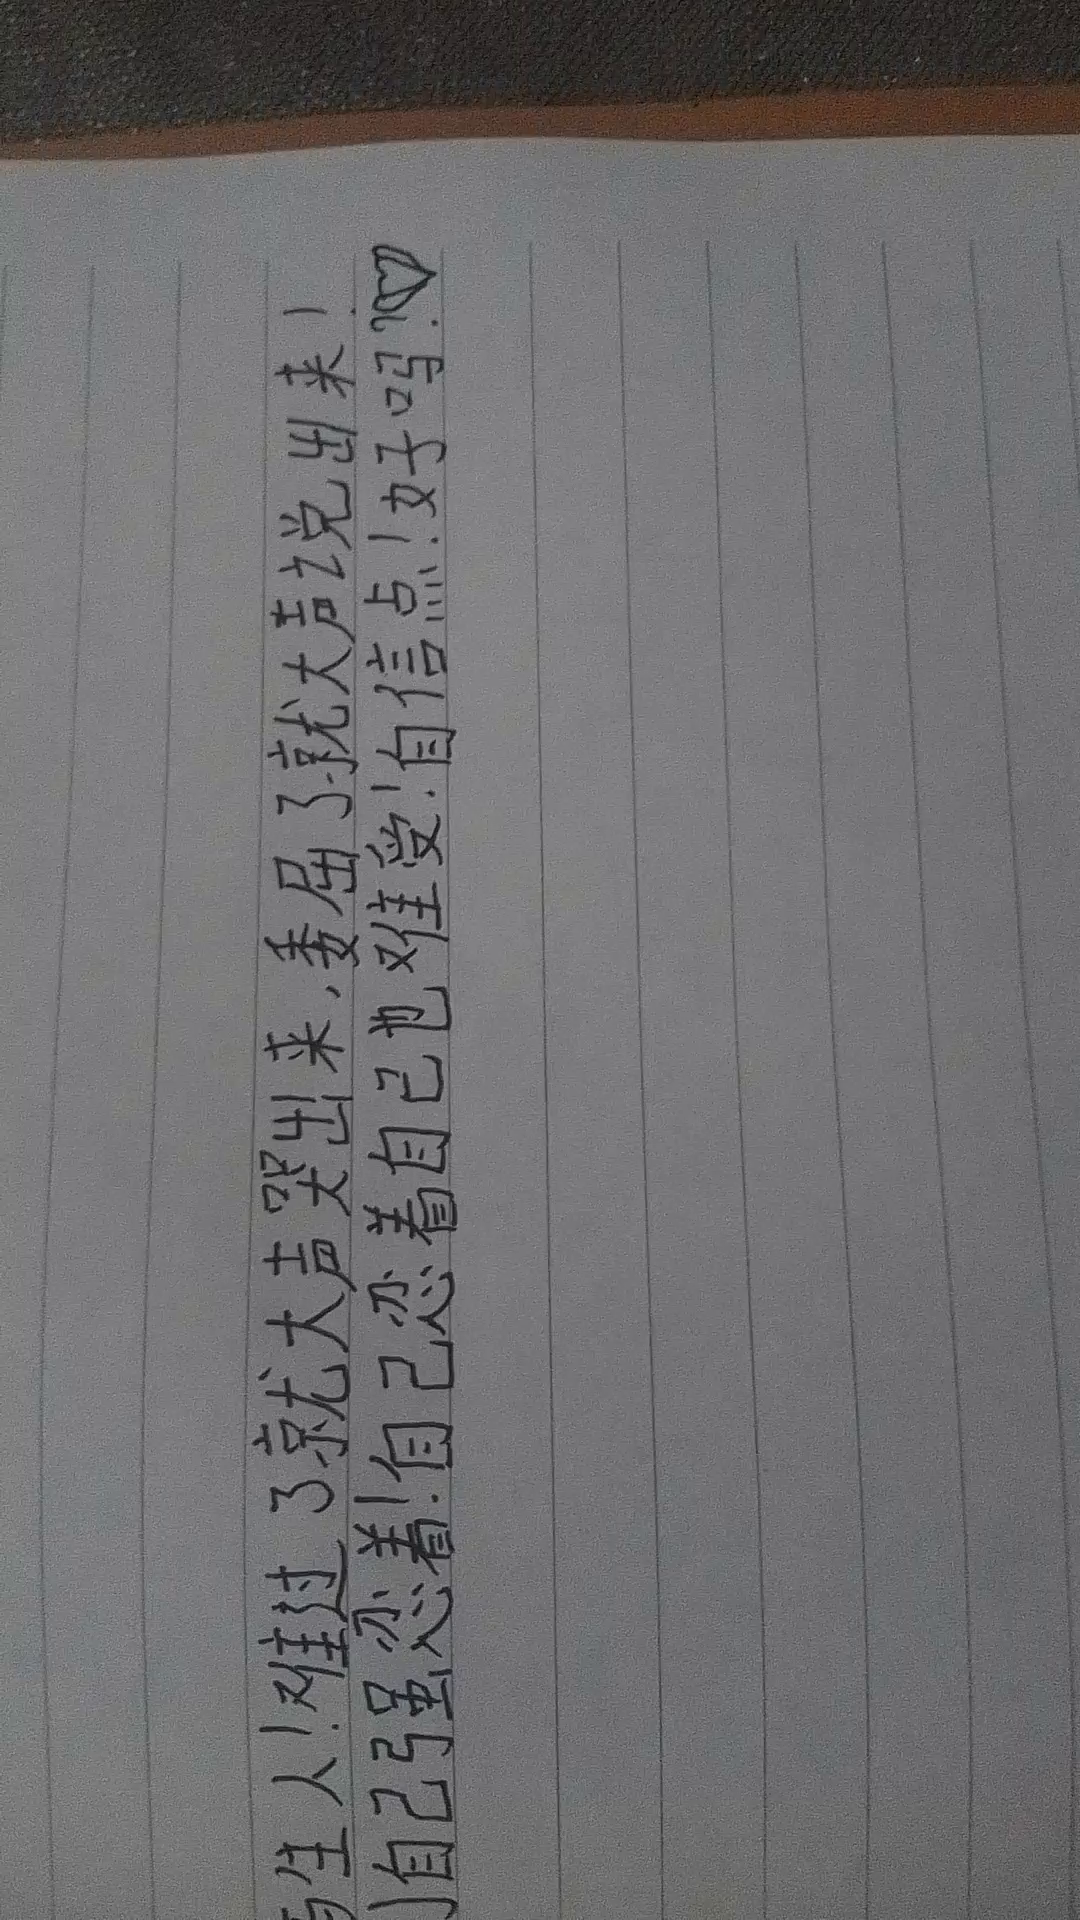 生人！难过了就大声哭出来，委屈了就大声说出来！
自己强忍着！自己忍着自己也难受！自信点！好吗？